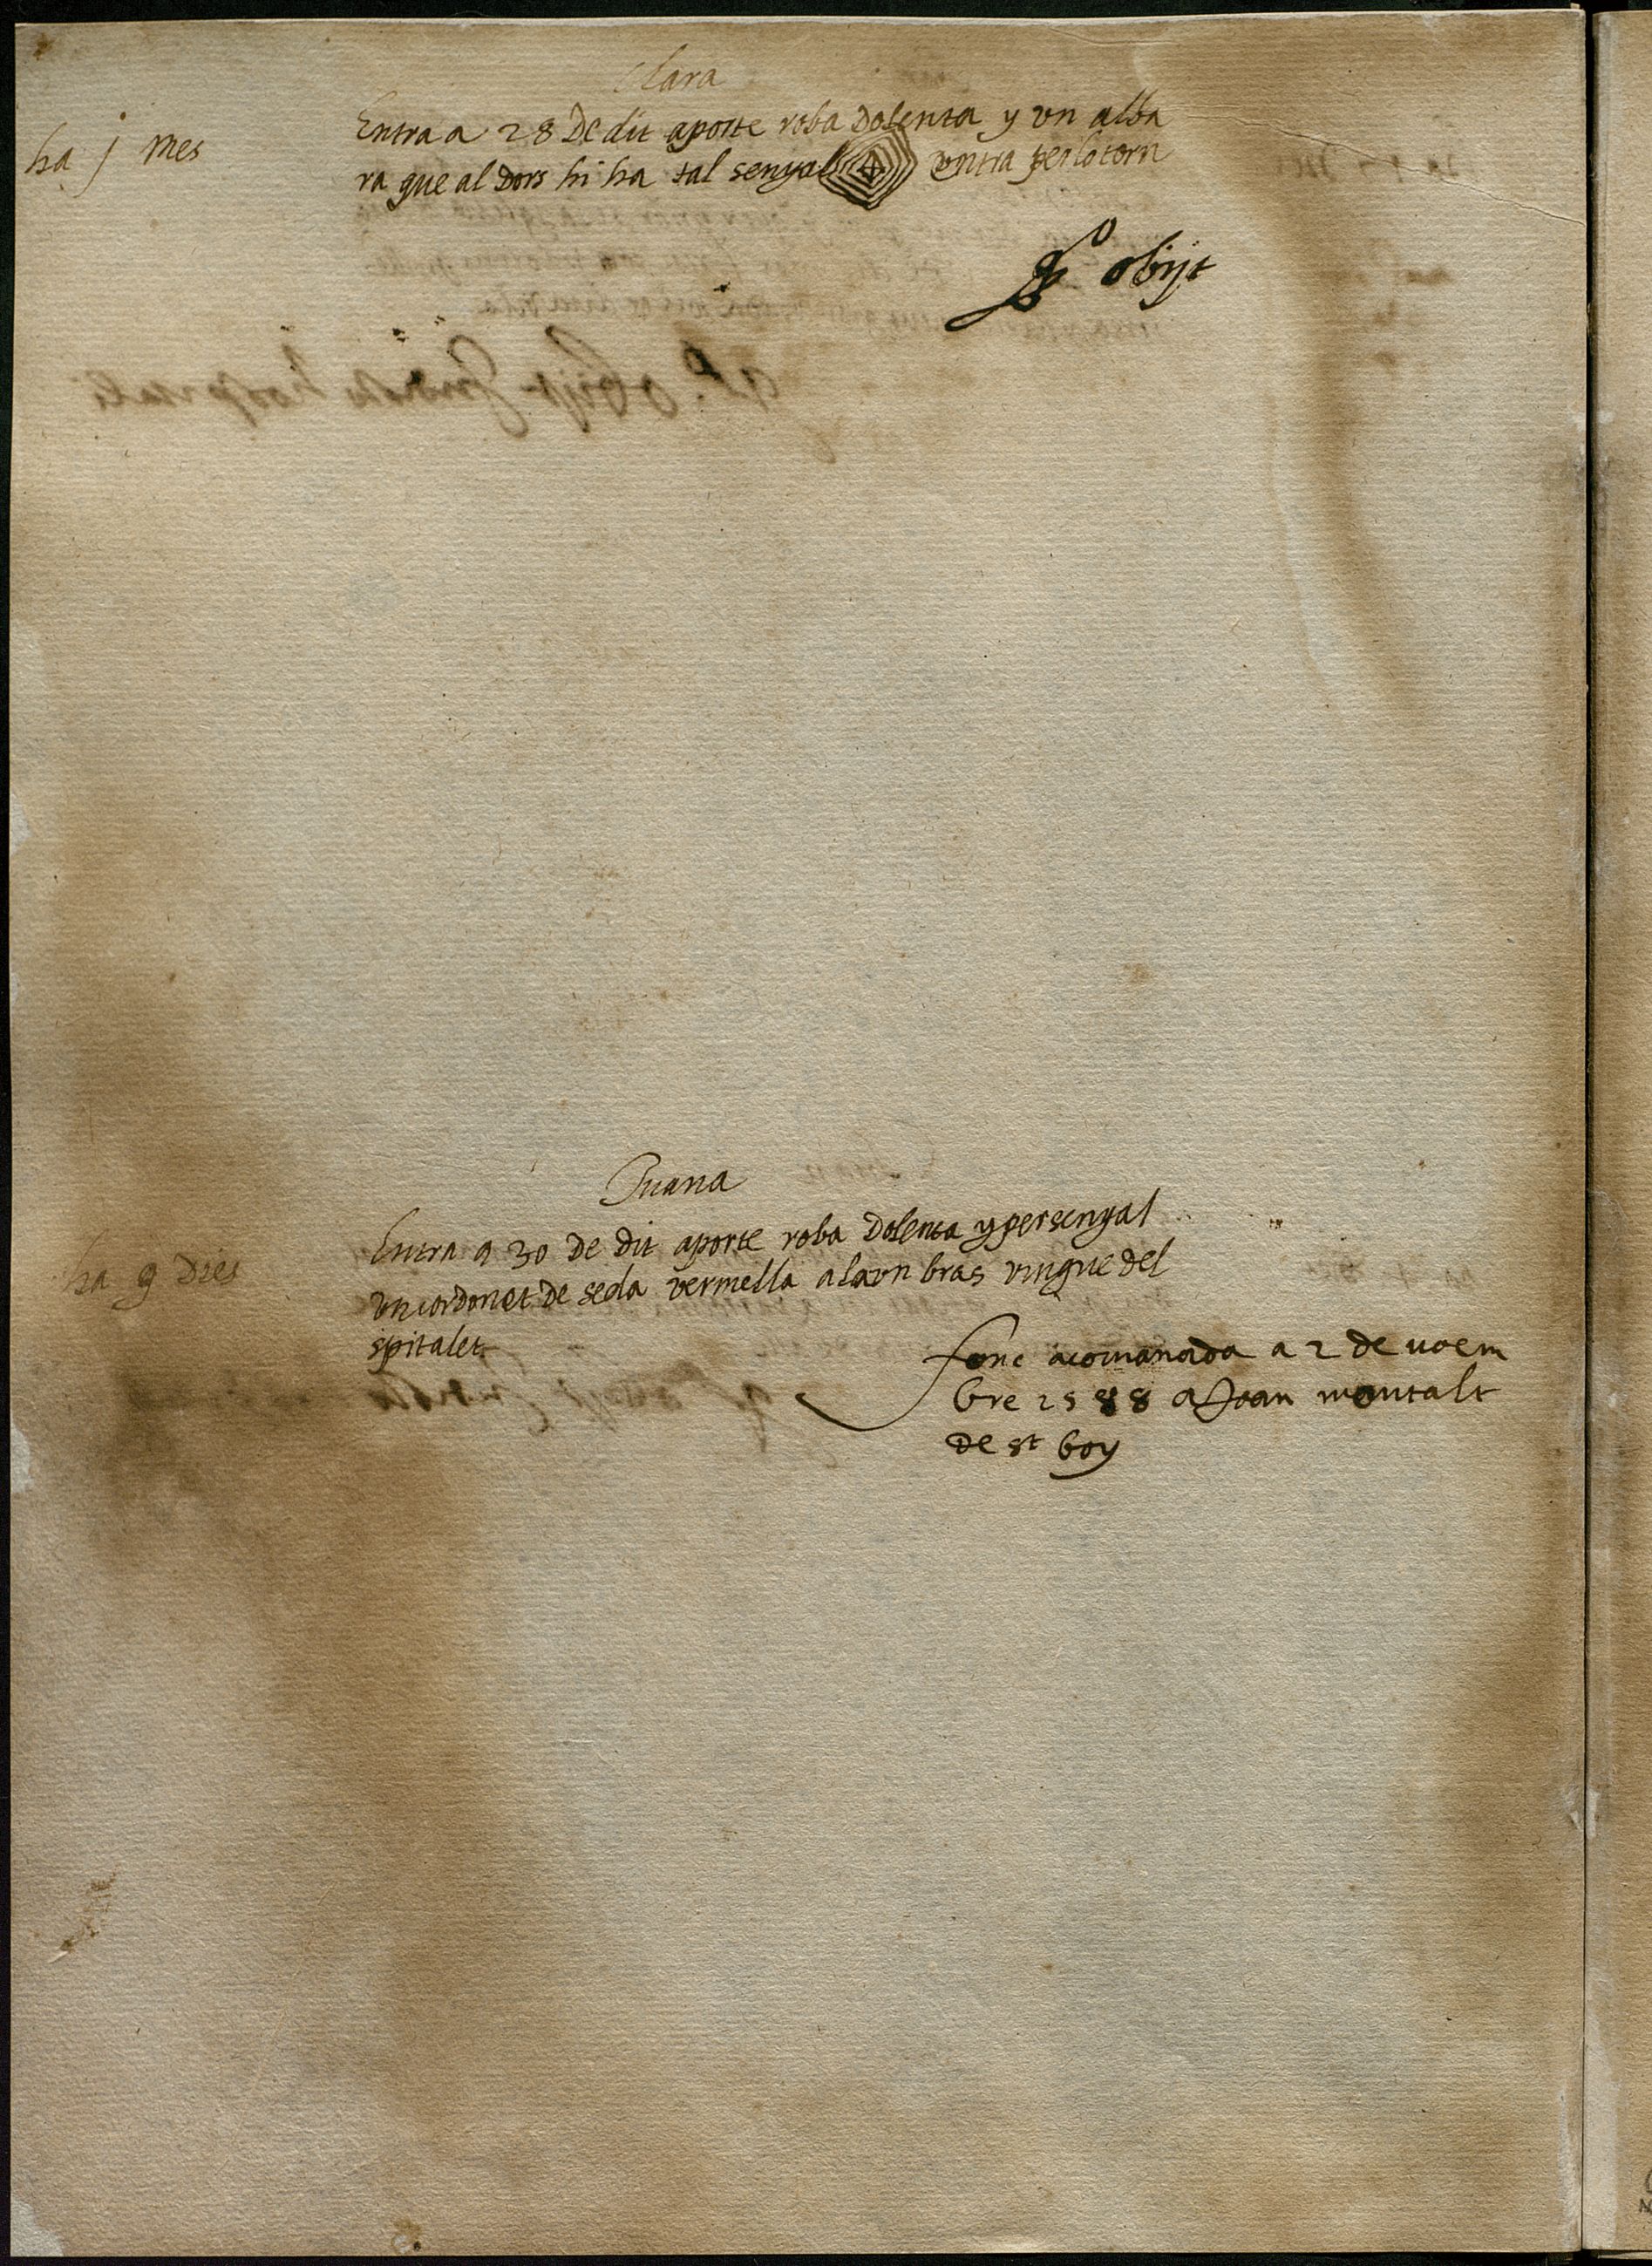 Clara
ha j mes
Entra a 28 De dit aporte roba Dolenta y vn alba
ra que al Dors hi ha tal senyal entra per lo torn
obijt
Juana
ha 9 Dies
Entra a 30 De Dit aporte roba Dolenta y per senyal
vn cordonet de seda vermella a la vn bras vingue del
spitalet
fonc acomanada a 2 de noem
bre 1588 a Joan montalt
de st boy